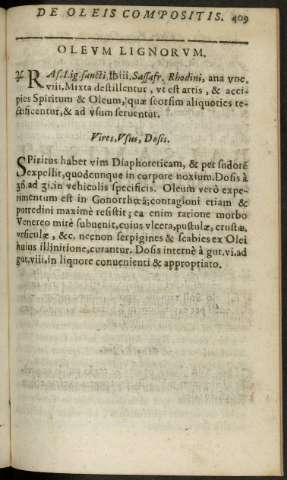 DE OLEIS COMPOSITIS. 409
OLEVM LIGNORVM.
℞ RAs. Lig. sancti, ℔iii. Sassafr. Rhodini, ana vnc.
viii. Mixta destillentur, vt est artis, & acci-
pies Spiritum & Oleum, quæ seorsim aliquoties re-
ctificentur, & ad vsum seruentur.
Vires, Vsus, Dosis.
SPiritus habet vim Diaphoreticam, & per sudorē
expellit, quodcunque in corpore noxium. Dosis à
ʒß. ad ʒi. in vehiculis specificis. Oleum verò expe-
rimentum est in Gonorrhœâ; contagioni etiam &
putredini maximè resistit; ea enim ratione morbo
Venereo mirè subuenit, cuius vlcera, pustulæ, crustæ,
vesiculæ, &c. necnon serpigines & scabies ex Olei
huius illinitione, curantur. Dosis internè à gut. vi. ad
gut. viii. in liquore conuenienti & appropriato.